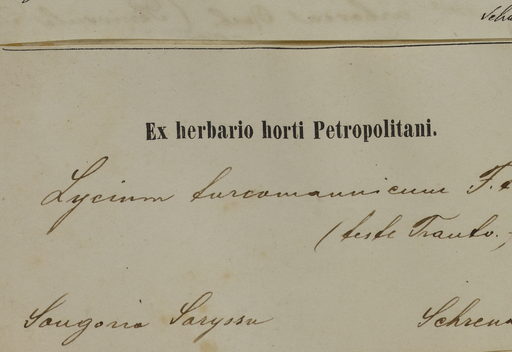 Scho
Ex herbario horti Petropolitani.
Lycium turcomannicum F. et
(teste Trautv.,
Songoria Saryssu
Schren